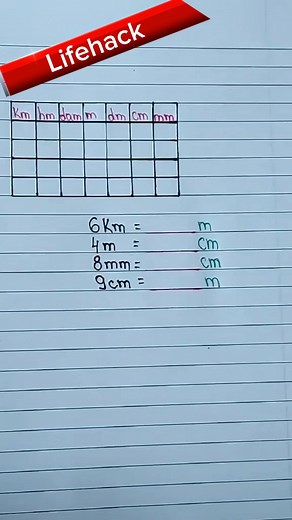 Lifehack
km hm dam m dm cm mm
6Km = ______ m
4m = ______ cm
8mm = ______ cm
9cm = ______ m